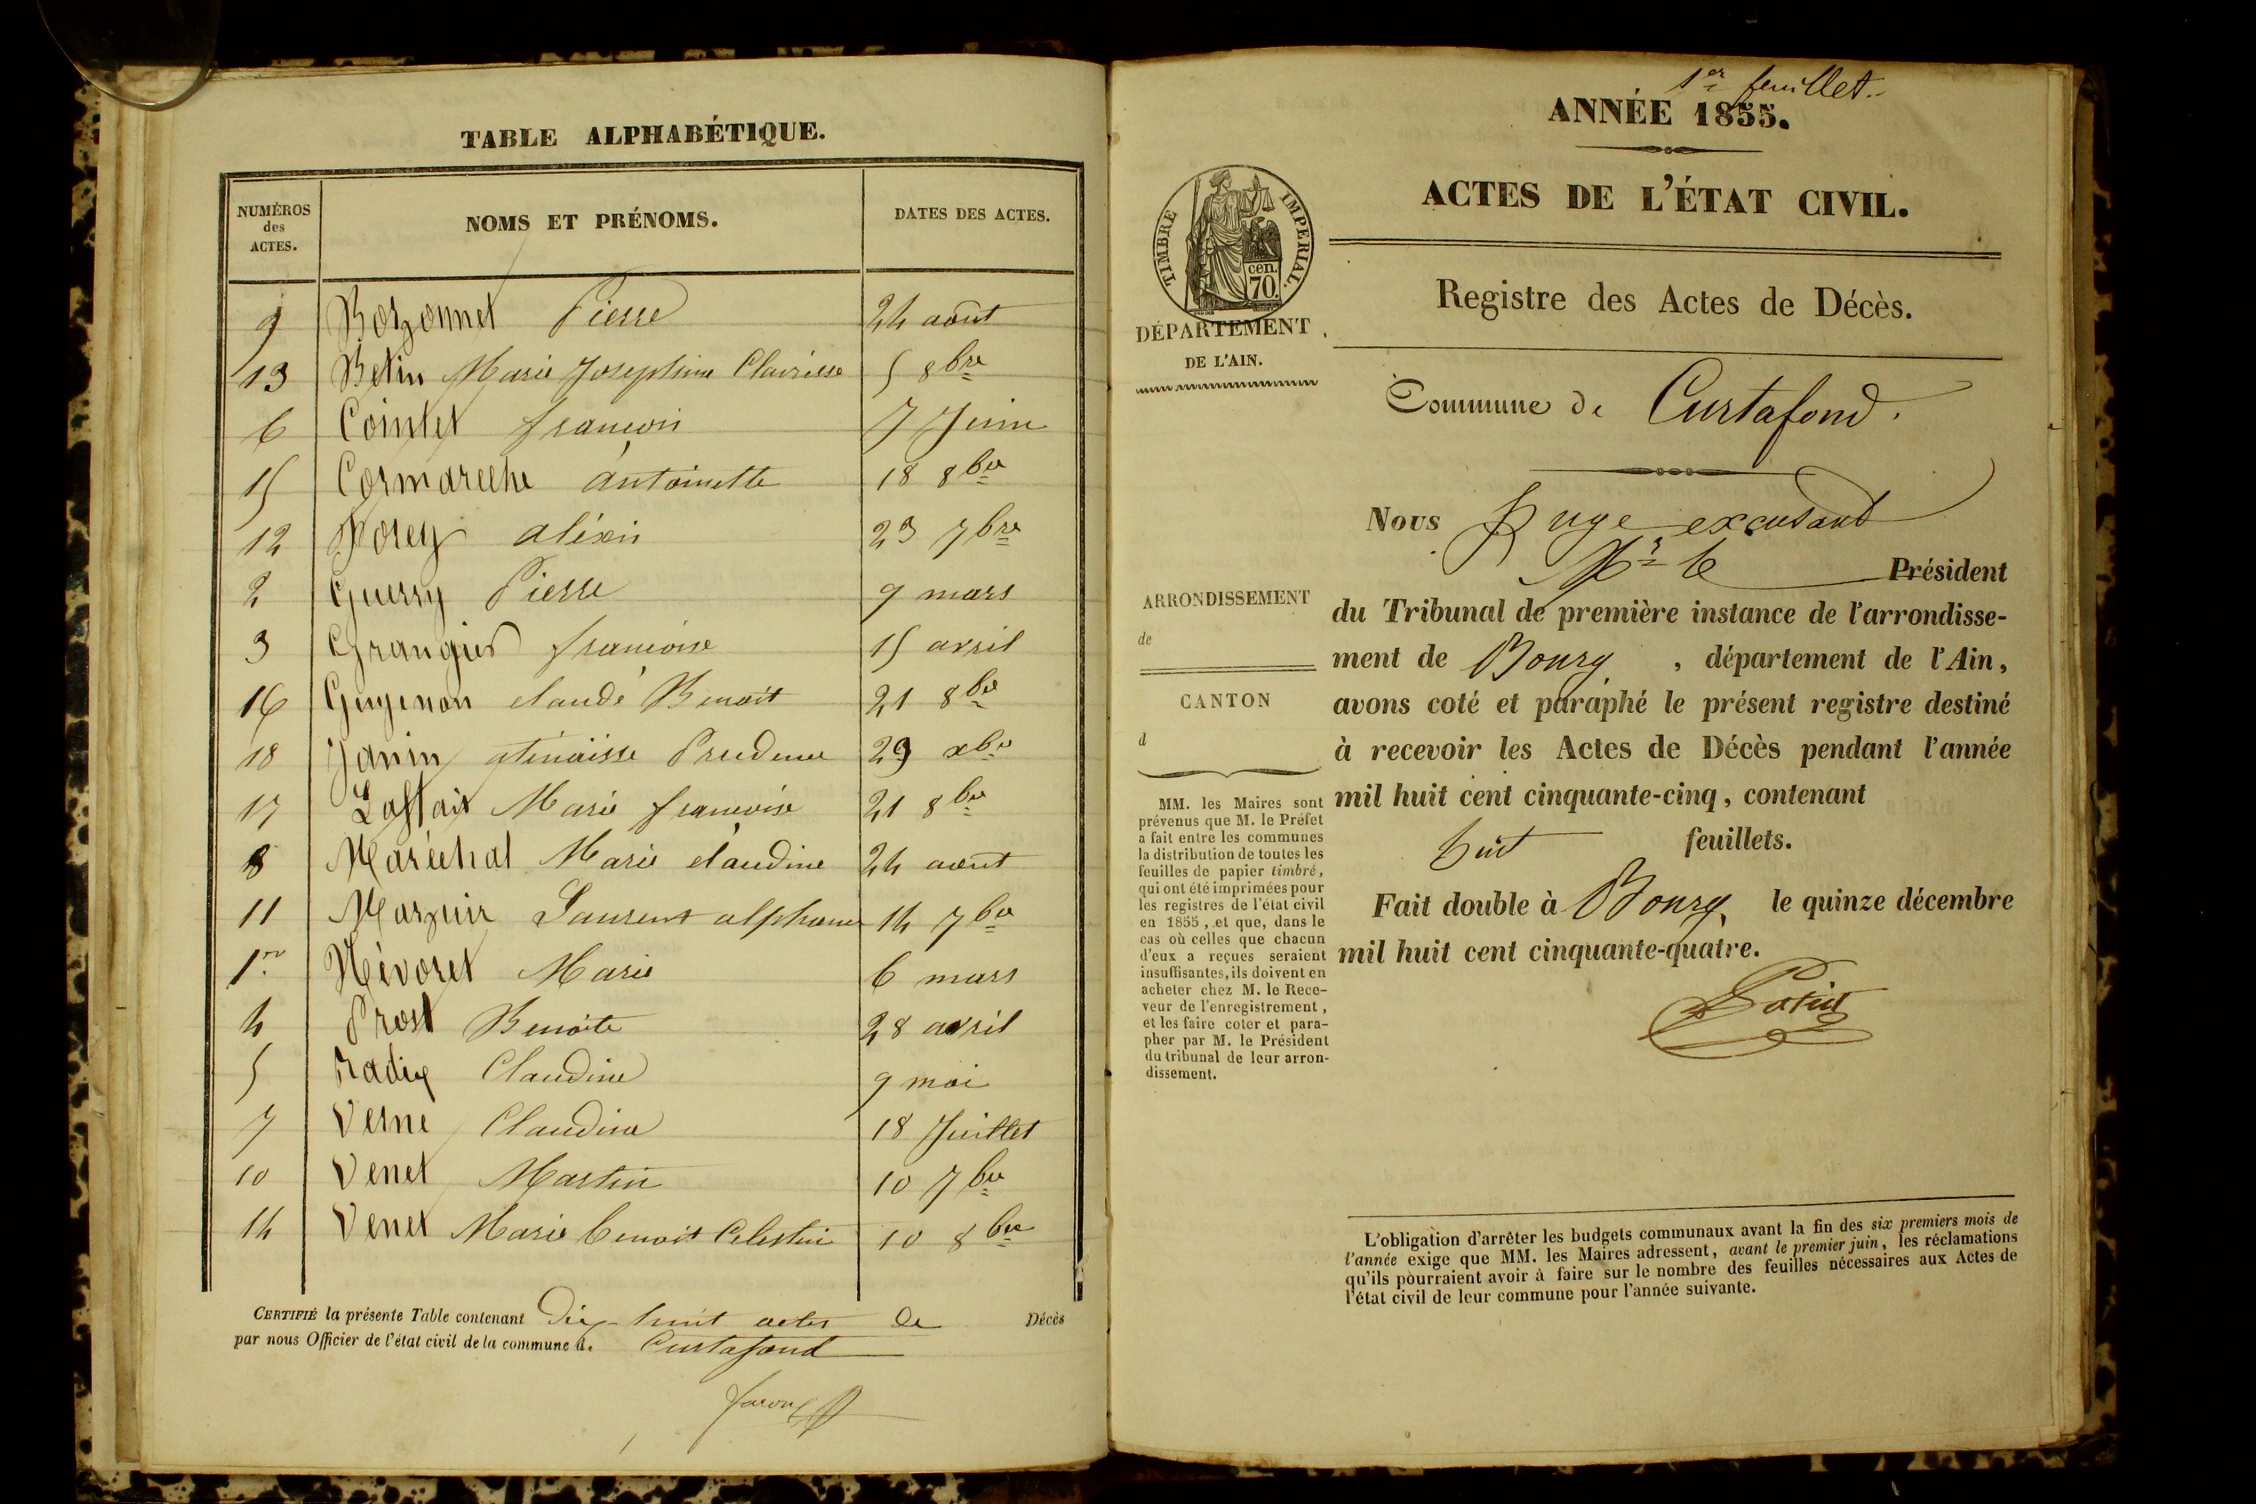 TABLE ALPHABÉTIQUE.
NUMÉROS des ACTES. NOMS ET PRÉNOMS. DATES DES ACTES.
9 Bozonnet Pierre 24 août
13 Betin Marie Josephine Clarisse 5 8bre
6 Cointet françois 7 Juin
15 Cormareche antoinette 18 8bre
12 aléxis 23 7bre
2 Guerry Pierre 9 mars
3 Granger françoise 15 avril
16 Guyenon claude Benoit 21 8bre
18 Janin Prudence 29 xbre
17 Marie françoise 21 8bre
8 Maréchal Marie claudine 24 août
11 Laurent alphonse 14 7bre
1er Névoret Marie 6 mars
4 Prost Benoite 28 avril
5 Radix Claudine 9 mai
7 Verne Claudine 18 Juillet
10 Venet Martin 10 7bre
14 Venet Marie benoit Celestin 10 8bre
CERTIFIÉ la présente Table contenant Dix huit actes de Décès
par nous Officier de l'état civil de la commune d. Curtafond
1er feuillet.
ANNÉE 1855.
ACTES DE L'ÉTAT CIVIL.
TIMBRE IMPERIAL.
cen.
70.
DÉPARTEMENT
DE L'AIN.
Registre des Actes de Décès.
Commune de Curtafond.
Nous Juge excusant
Mr le Président
du Tribunal de première instance de l'arrondisse-
ment de Bourg, département de l'Ain,
avons coté et paraphé le présent registre destiné
à recevoir les Actes de Décès pendant l'année
mil huit cent cinquante-cinq, contenant
huit feuillets.
Fait double à Bourg, le quinze décembre
mil huit cent cinquante-quatre.
ARRONDISSEMENT
de
CANTON
d
MM. les Maires sont
prévenus que M. le Préfet
a fait entre les communes
la distribution de toutes les
feuilles de papier timbré,
qui ont été imprimées pour
les registres de l'état civil
en 1855, et que, dans le
cas où celles que chacun
d'eux a reçues seraient
insuffisantes, ils doivent en
acheter chez M. le Rece-
veur de l'enregistrement,
et les faire coter et para-
pher par M. le Président
du tribunal de leur arron-
dissement.
L'obligation d'arrêter les budgets communaux avant la fin des six premiers mois de
l'année exige que MM. les Maires adressent, avant le premier juin, les réclamations
qu'ils pourraient avoir à faire sur le nombre des feuilles nécessaires aux Actes de
l'état civil de leur commune pour l'année suivante.